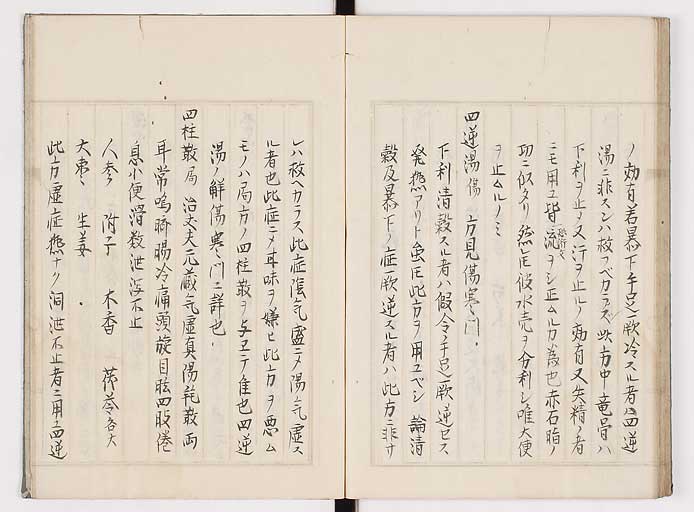 ノ効有若暴下手足厥冷スル者ハ四逆
湯ニ非スンハ救フヘカラズ此方中竜骨ハ
下利ヲ止メ又汗ヲ止ルノ効有又失精ノ者
ニモ用ユ皆流ヲシ正ムルカ為也赤石脂ノ
功ニ似タリ然レ𪜈彼水売ヲ分利シ唯大便
ヲ止ムルノミ
四逆湯傷 方見傷寒門
下利清穀スル者ハ假令手足厥逆セス
発熱アリト虽𪜈此方ヲ用ユベシ 論清
穀及暴下ノ症厥逆スル者ハ此方ニ非サ
レハ救ヘカラス此症陰気盛ニメ陽気虚ス
ル者也此症ニメ耳味ヲ嫌ヒ此方ヲ悪ム
モノハ局方ノ四柱散ヲ与ユニテ佳也四逆
湯ノ解傷寒門ニ詳也
四柱散局 治丈夫元蔵気虚真陽耗散両
耳常鳴臍腸冷痛頭旋目眩四肢倦
怠小便滑数泄泻不止
人参 附子 木香 茯苓各大
大枣 生姜
此方虚症熱ナク洞泄不止者ニ用ユ四逆